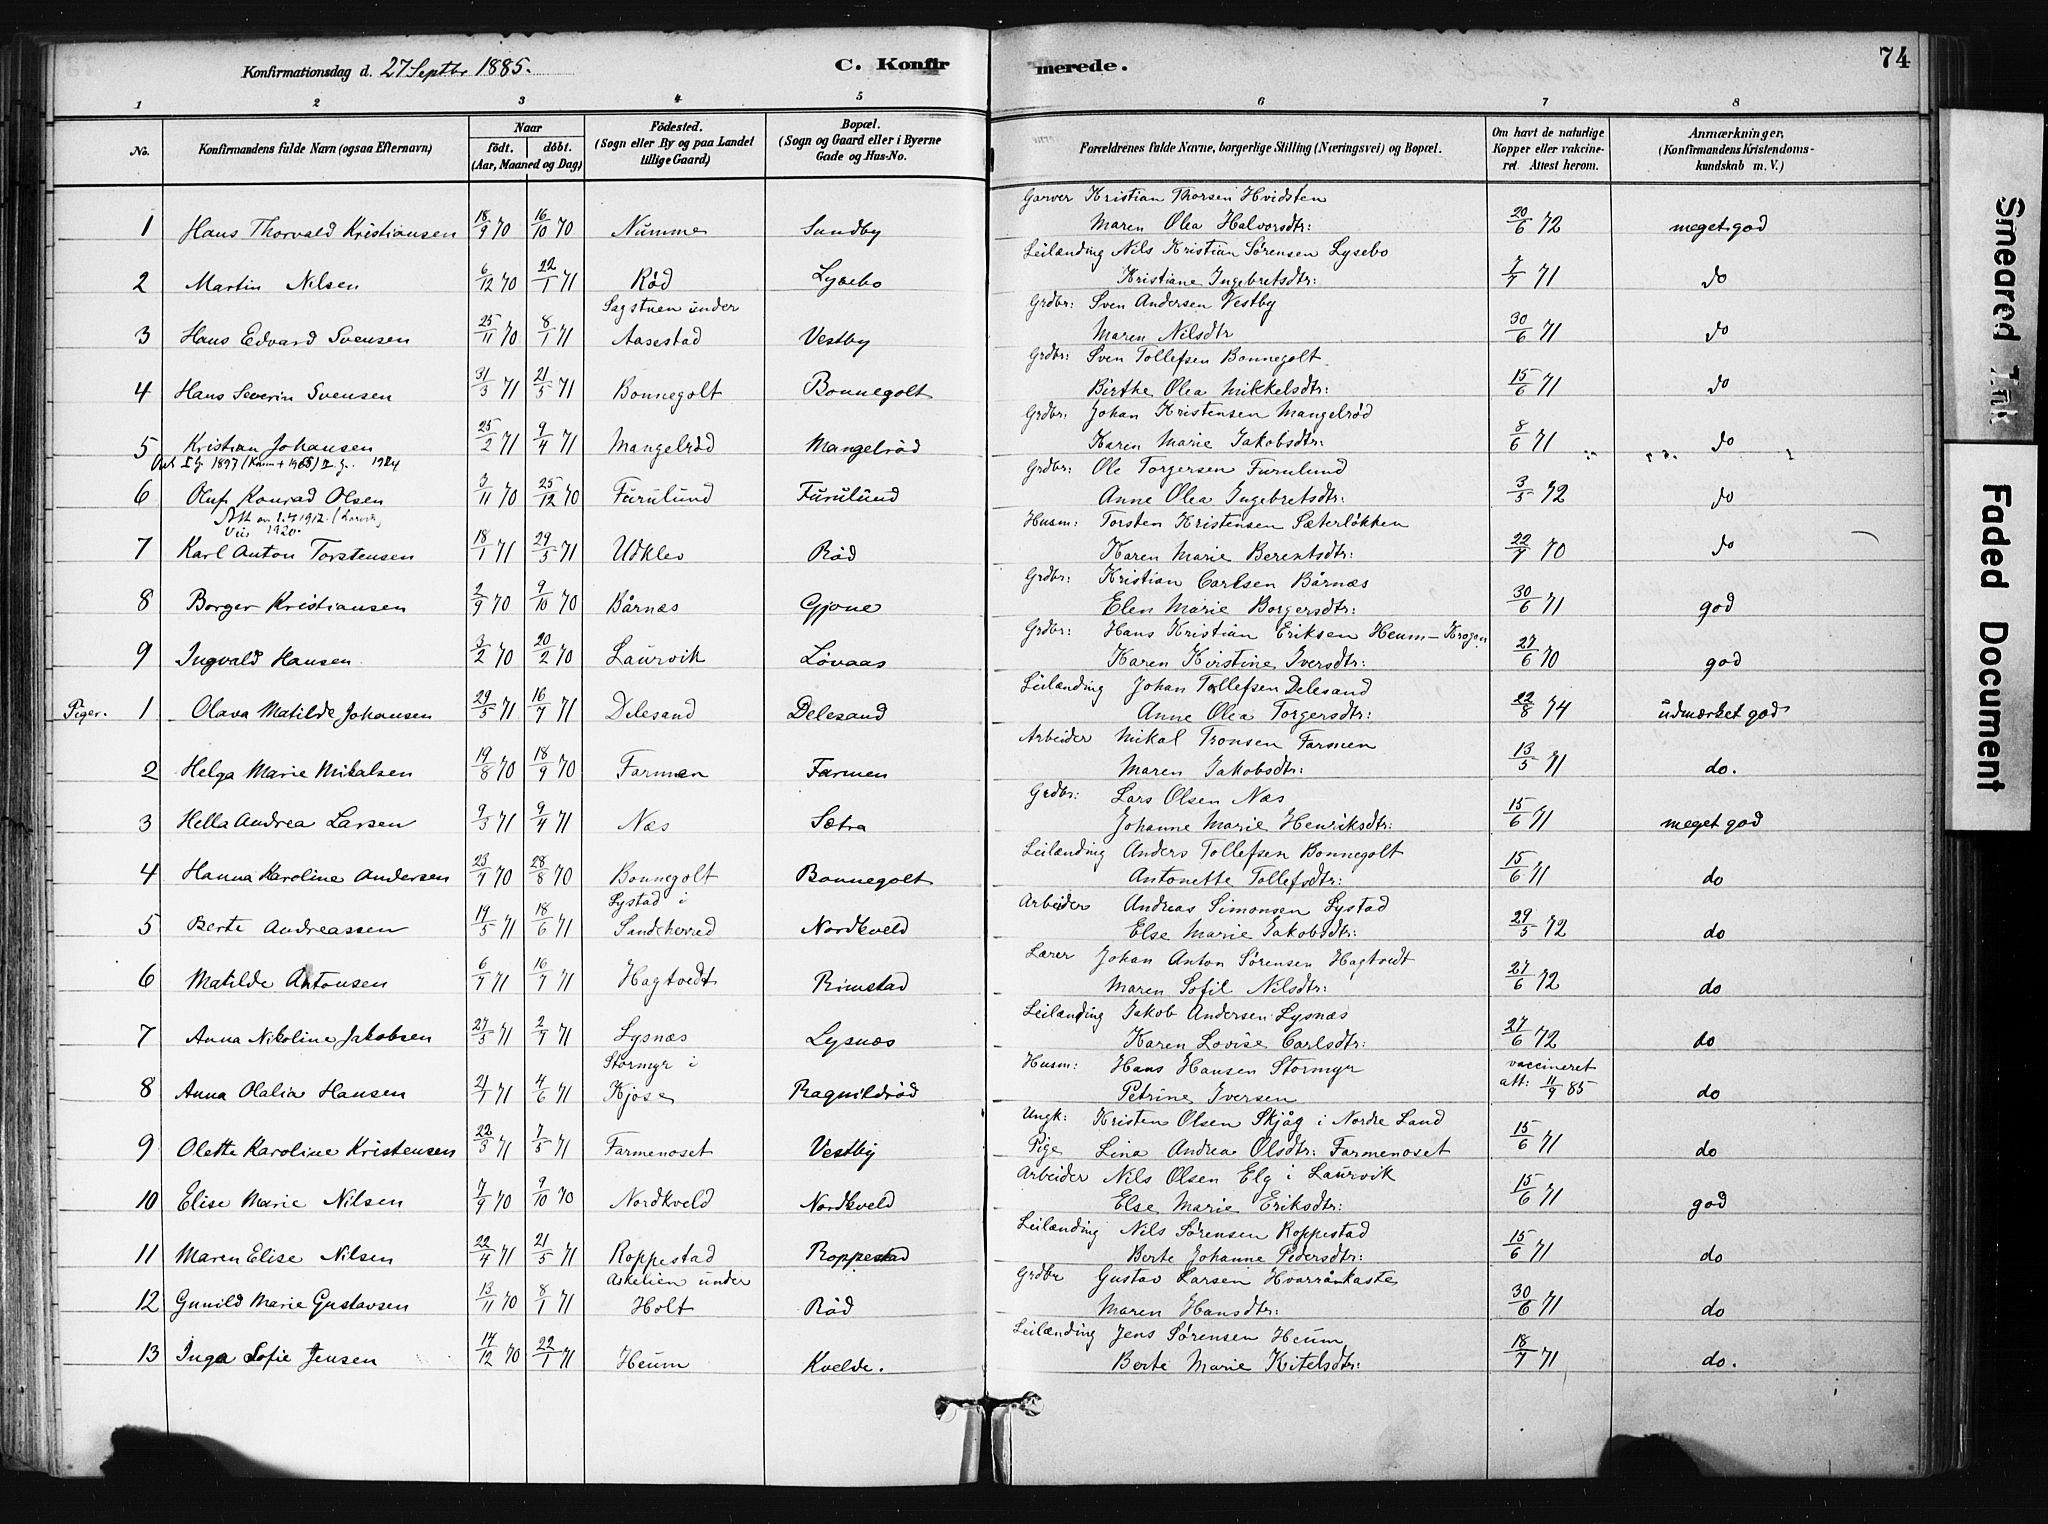 Konfirmationsdag d. 27 Septbr. 1885.
C. Konfirmerede.
74
1 2 3 4 5 6 7 8
No.
Konfirmandens fulde Navn (ogsaa Efternavn)
Naar født. døbt. (Aar, Maaned og Dag)
Fødested. (Sogn eller By og paa Landet tillige Gaard)
Bopæl. (Sogn og Gaard eller i Byerne Gade og Hus-No.
Forældrenes fulde Navne, borgerlige Stilling (Næringsvei) og Bopæl.
Om havt de naturlige Kopper eller vakcineret. Attest herom.
Anmærkninger, (Konfirmandens Kristendomskundskab m. V.)
1 Hans Thorvald Kristiansen 18/9 70 16/10 70 Numme Sundby Garver Kristian Thorsen Hvidsten Maren Olea Halvorsdtr: 20/6 72 meget god
2 Martin Nilsen 6/12 70 22/1 71 Rød Lysebo Leilænding Nils Kristian Sørensen Lysebo Kristiane Ingebretsdtr: 7/7 71 do
3 Hans Edvard Svensen 25/11 70 8/1 71 Sagstuen under Aasestad Vestby Grdbr: Sven Andersen Vestby Maren Nilsdtr 30/6 71 do
4 Hans Severin Svensen 31/3 71 21/5 71 Bonnegolt Bonnegolt Grdbr: Sven Tollefsen Bonnegolt Birthe Olea Mikkelsdtr: 15/6 71 do
5 Kristian Johansen 25/2 71 9/4 71 Mangelrød Mangelrød Grdbr: Johan Kristensen Mangelrød Karen Marie Jakobsdtr: 8/6 71 do
6 Oluf Konrad Olsen 3/11 70 25/12 70 Furulund Furulund Grdbr: Ole Torgersen Furulund Anne Olea Ingebretsdtr: 3/5 72 do
7 Karl Anton Torstensen 18/1 71 29/5 71 Udklev Rød Husm: Torsten Kristensen Sæterløkken Karen Marie Berentsdtr: 22/7 70 do
8 Borger Kristiansen 2/9 70 9/10 70 Bårnæs Gjone Grdbr: Kristian Carlsen Bårnæs Elen Marie Borgersdtr: 30/6 71 god
9 Ingvald Hansen 3/2 70 20/2 70 Laurvik Løvaas Grdbr: Hans Kristian Eriksen Heum-Krogen Karen Kirstine Iversdtr: 27/6 70 god
Piger. 1 Olava Matilde Johansen 29/5 71 16/7 71 Delesand Delesand Leilænding Johan Tollefsen Delesand Anne Olea Torgersdtr: 22/8 74 udmærket god
2 Helga Marie Mikalsen 19/8 70 18/9 70 Farmen Farmen Arbeider Mikal Tronsen Farmen Maren Jakobsdtr: 13/5 71 do.
3 Hella Andrea Larsen 9/3 71 9/4 71 Næs Sætra Grdbr: Lars Olsen Næs Johanne Marie Henriksdtr: 15/6 71 meget god
4 Hanna Karoline Andersen 23/7 70 28/8 70 Bonnegolt Bonnegolt Leilænding Anders Tollefsen Bonnegolt Antonette Tollefsdtr: 15/6 71 do
5 Berte Andreassen 19/5 71 18/6 71 Lystad i Sandeherred Nordkveld Arbeider Andreas Simonsen Lystad Else Marie Jakobsdtr: 29/5 72 do
6 Matilde Antonsen 6/7 71 16/7 71 Hagtvedt Rimstad Lærer Johan Anton Sørensen Hagtvedt Maren Sofil Nilsdtr: 27/6 72 do
7 Anna Nikoline Jakobsen 27/5 71 2/7 71 Lysnæs Lysnæs Leilænding Jakob Andersen Lysnæs Karen Lovise Carlsdtr: 27/6 72 do
8 Anna Olalia Hansen 21/1 71 4/6 71 Stormyr i Kjose Ragnildrød Husm: Hans Hansen Stormyr Petrine Iversen vaccineret att: 11/9 85 do
9 Olette Karoline Kristensen 22/3 71 7/5 71 Farmenoset Vestby Ungk: Kristen Olsen Skjåg i Nordre Land Pige Lina Andrea Olsdtr: Farmenoset 15/6 71 do
10 Elise Marie Nilsen 7/9 70 9/10 70 Nordkveld Nordkveld Arbeider Nils Olsen Elg i Laurvik Else Marie Eriksdtr: 15/6 71 god
11 Maren Elise Nilsen 22/4 71 21/5 71 Roppestad Roppestad Leilænding Nils Sørensen Roppestad Berte Johanne Pedersdtr: 15/6 71 do
12 Gunild Marie Gustavsen 13/11 70 8/1 71 Askelien under Holt Rød Grdbr Gustav Larsen Hvarrånkaste Maren Hansdtr: 30/6 71 do
13 Inga Sofie Jensen 14/12 70 22/1 71 Heum Kvelde. Leilænding Jens Sørensen Heum Berte Marie Kitelsdtr: 18/7 71 do.
Smeared Ink
Faded Document